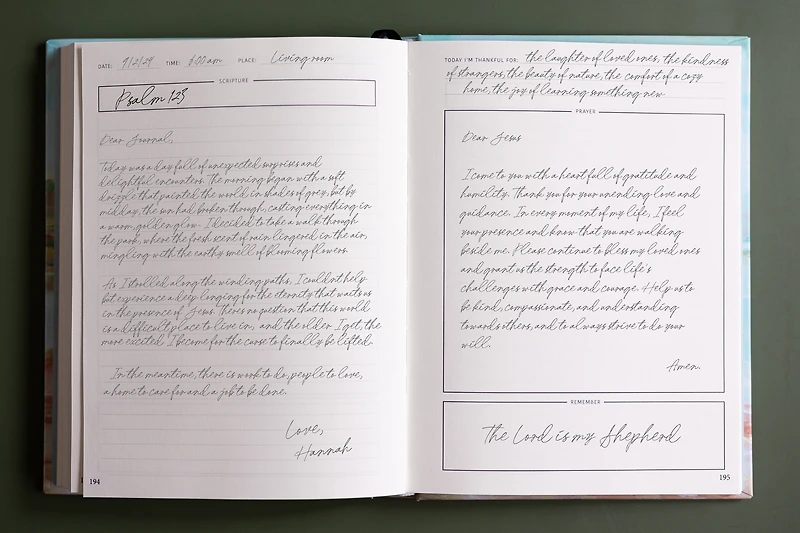 DATE: 9/2/24 TIME: 8:00 am PLACE: Living room
SCRIPTURE
Psalm 123
Dear Journal,
Today was a day full of unexpected surprises and
delightful encounters. The morning began with a soft
drizzle that painted the world in shades of grey, but by
midday, the sun had broken through, casting everything in
a warm, golden glow. I decided to take a walk through
the park, where the fresh scent of rain lingered in the air,
mingling with the earthy smell of blooming flowers.
As I strolled along the winding paths, I couldn't help
but experience a deep longing for the eternity that waits us
in the presence of Jesus. There's no question that this world
is a difficult place to live in, and the older I get, the
more excited I become for the curse to finally be lifted.
In the meantime, there is work to do, people to love,
a home to care for and a job to be done.
Love,
Hannah
194
TODAY I'M THANKFUL FOR: the laughter of loved ones, the kindness
of strangers, the beauty of nature, the comfort of a cozy
home, the joy of learning something new
PRAYER
Dear Jesus
I come to you with a heart full of gratitude and
humility. Thank you for your unending love and
guidance. In every moment of my life, I feel
your presence and know that you are walking
beside me. Please continue to bless my loved ones
and grant us the strength to face life's
challenges with grace and courage. Help us to
be kind, compassionate, and understanding
towards others, and to always strive to do your
will.
Amen.
REMEMBER
The Lord is my Shepherd
195